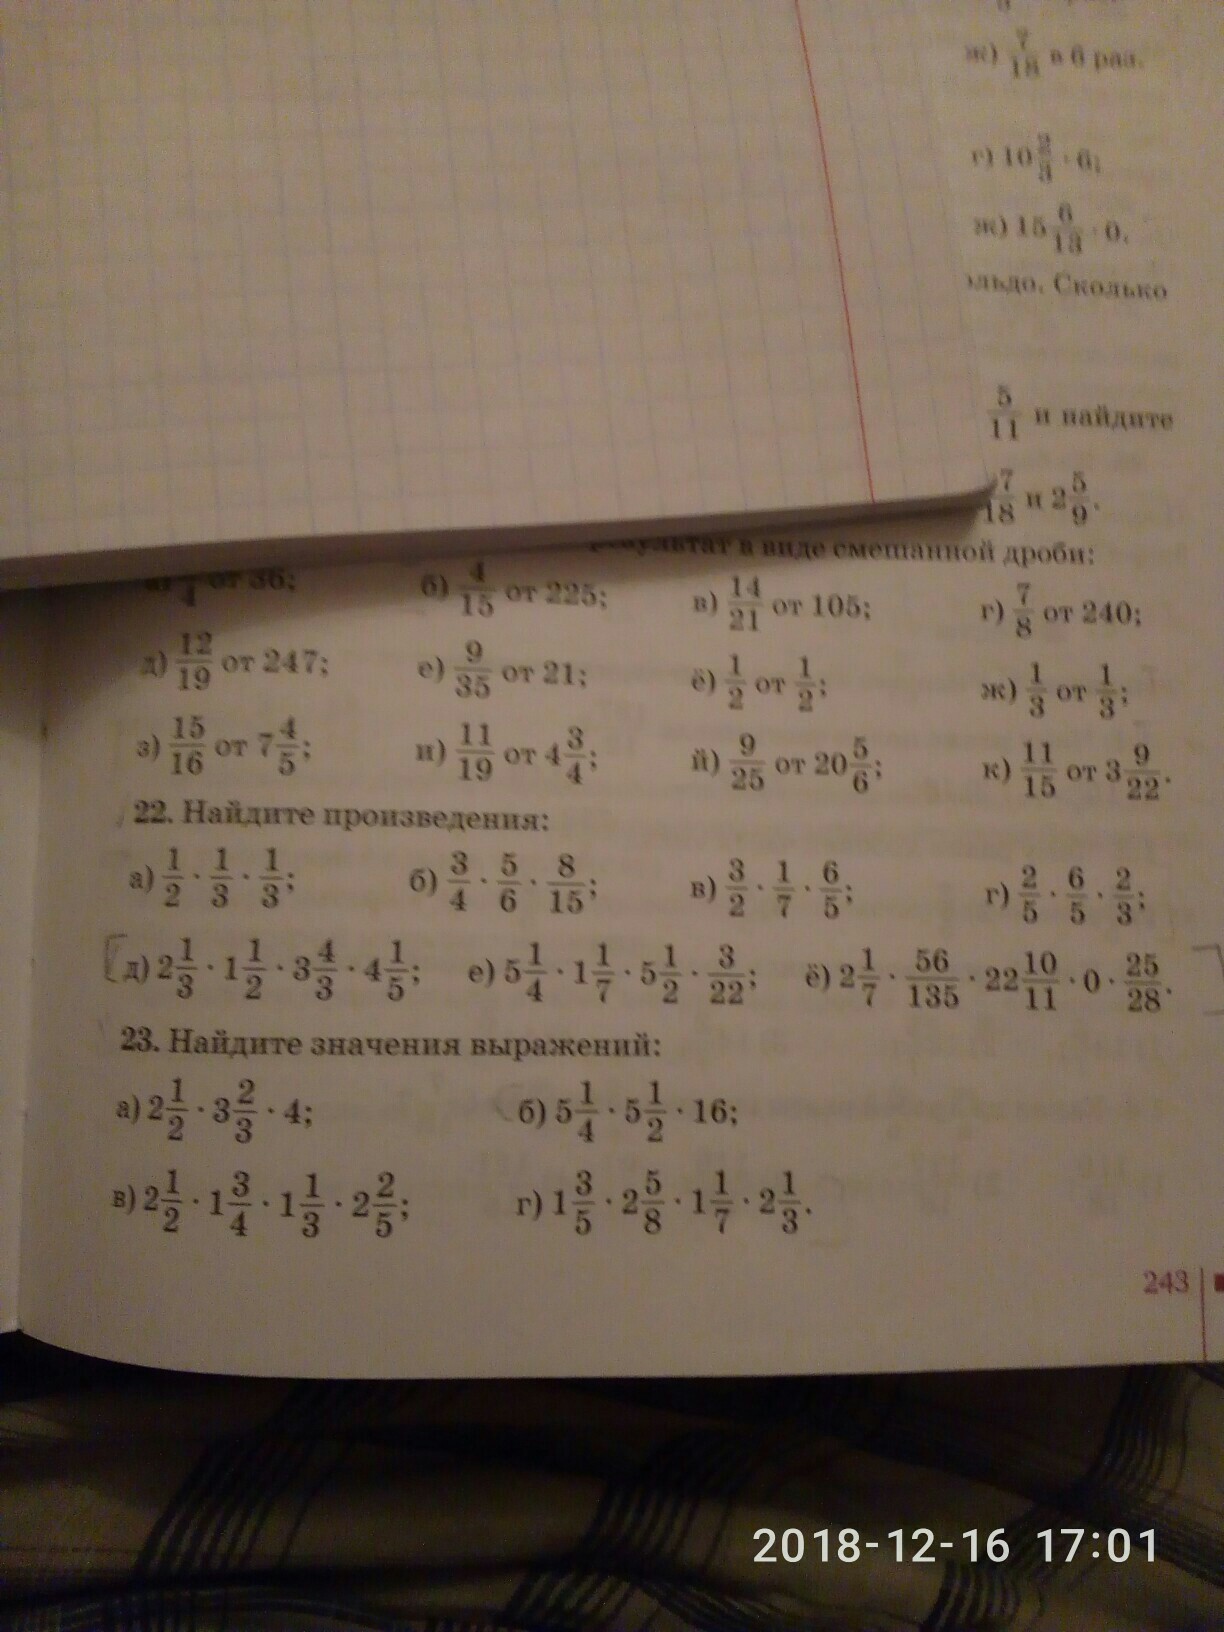 ж) 7/18 в 6 раз.
г) 10 2/3 · 6;
ж) 15 6/13 · 0.
Сколько
5/11 и найдите
7/18 и 2 5/9.
в виде смешанной дроби:
от 36; б) 4/15 от 225; в) 14/21 от 105; г) 7/8 от 240;
д) 12/19 от 247; е) 9/35 от 21; ё) 1/2 от 1/2; ж) 1/3 от 1/3;
з) 15/16 от 7 4/5; и) 11/19 от 4 3/4; й) 9/25 от 20 5/6; к) 11/15 от 3 9/22.
22. Найдите произведения:
а) 1/2 · 1/3 · 1/3; б) 3/4 · 5/6 · 8/15; в) 3/2 · 1/7 · 6/5; г) 2/5 · 6/5 · 2/3;
д) 2 1/3 · 1 1/2 · 3 4/3 · 4 1/5; е) 5 1/4 · 1 1/7 · 5 1/2 · 3/22; ё) 2 1/7 · 56/135 · 22 10/11 · 0 · 25/28.
23. Найдите значения выражений:
а) 2 1/2 · 3 2/3 · 4; б) 5 1/4 · 5 1/2 · 16;
в) 2 1/2 · 1 3/4 · 1 1/3 · 2 2/5; г) 1 3/5 · 2 5/8 · 1 1/7 · 2 1/3.
243
2018-12-16 17:01